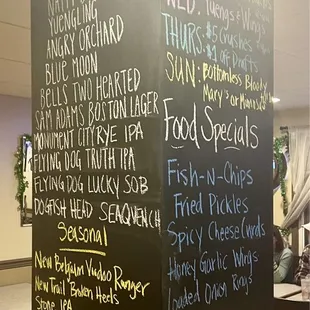 YUENGLING
ANGRY ORCHARD
BLUE MOON
BELLS TWO HEARTED
SAM ADAMS BOSTON LAGER
MONUMENT CITY RYE IPA
FLYING DOG TRUTH IPA
FLYING DOG LUCKY SOB
DOGFISH HEAD SEAQUENCH
Seasonal
New Belgium Voodoo Ranger
New Trail Broken Heels
Stone IPA
WED: Yuengs & Wings
THURS: $5 Crushes
$1 off Drafts
SUN: Bottomless Bloody
Mary's or Mom
Food Specials
Fish-N-Chips
Fried Pickles
Spicy Cheese Curds
Honey Garlic Wings
Loaded Onion Rings